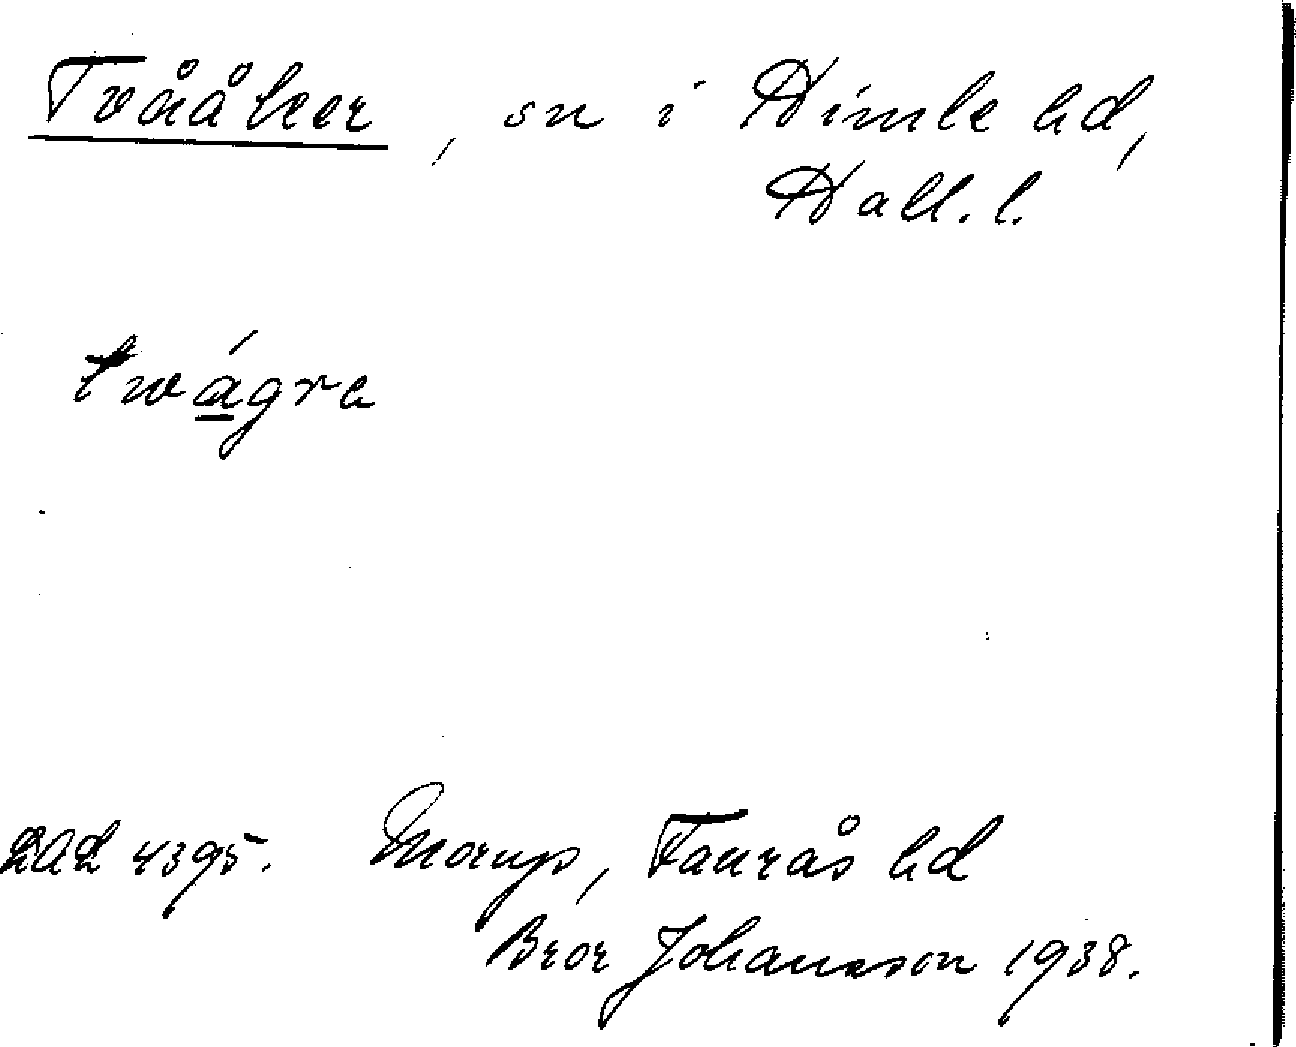 Tvååker, sn i Himle hd,
Hall. l.
twágra
LAL 4395. Morup, Faurås hd
Bror Johansson 1938.